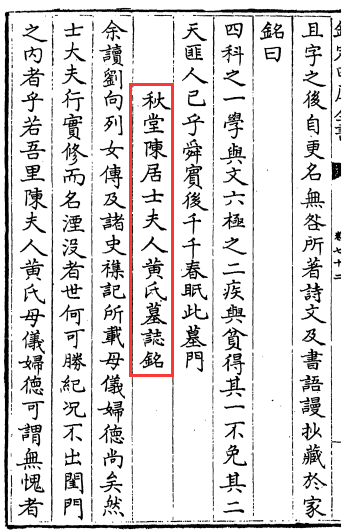 且字之後自更名無咎所著詩文及書語謾抄藏於家
銘曰
四科之一學與文六極之二疾與貧得其一不免其二
天匪人已乎舜賓後千千春眂此墓門
秋堂陳居士夫人黄氏墓誌銘
余讀劉向列女傳及諸史襍記所載母儀婦德尚矣然
士大夫行實修而名湮沒者世何可勝紀况不出閨門
之内者乎若吾里陳夫人黄氏母儀婦德可謂無愧者